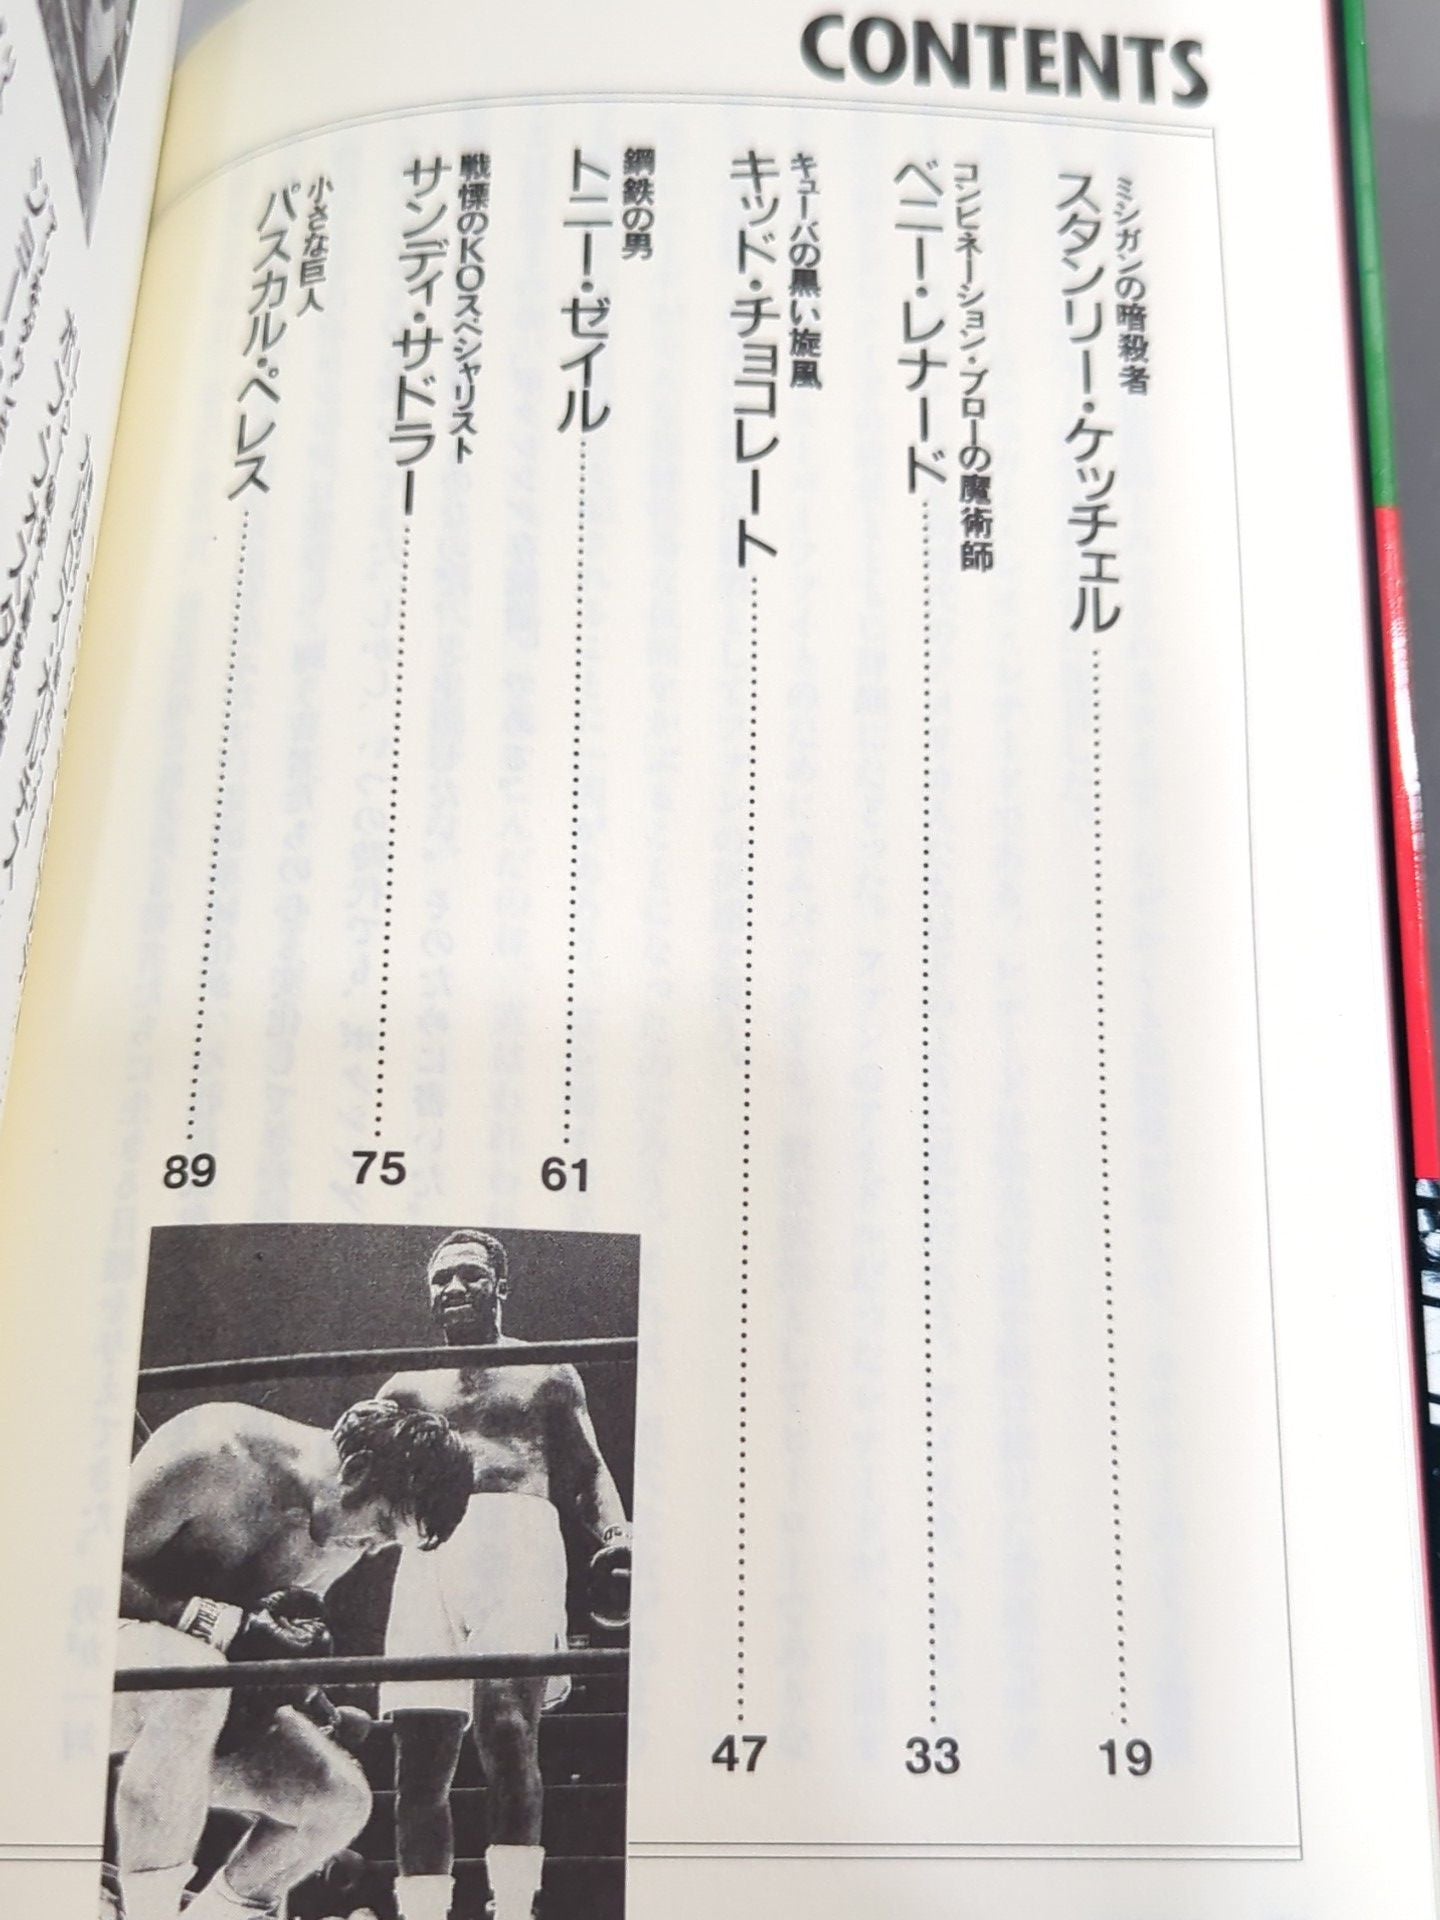 CONTENTS
ミシガンの暗殺者
スタンリー・ケッチェル
19
コンビネーション・ブローの魔術師
ベニー・レナード
33
キューバの黒い旋風
キッド・チョコレート
47
鋼鉄の男
トニー・ゼイル
61
戦慄のKOスペシャリスト
サンディ・サドラー
75
小さな巨人
パスカル・ペレス
89